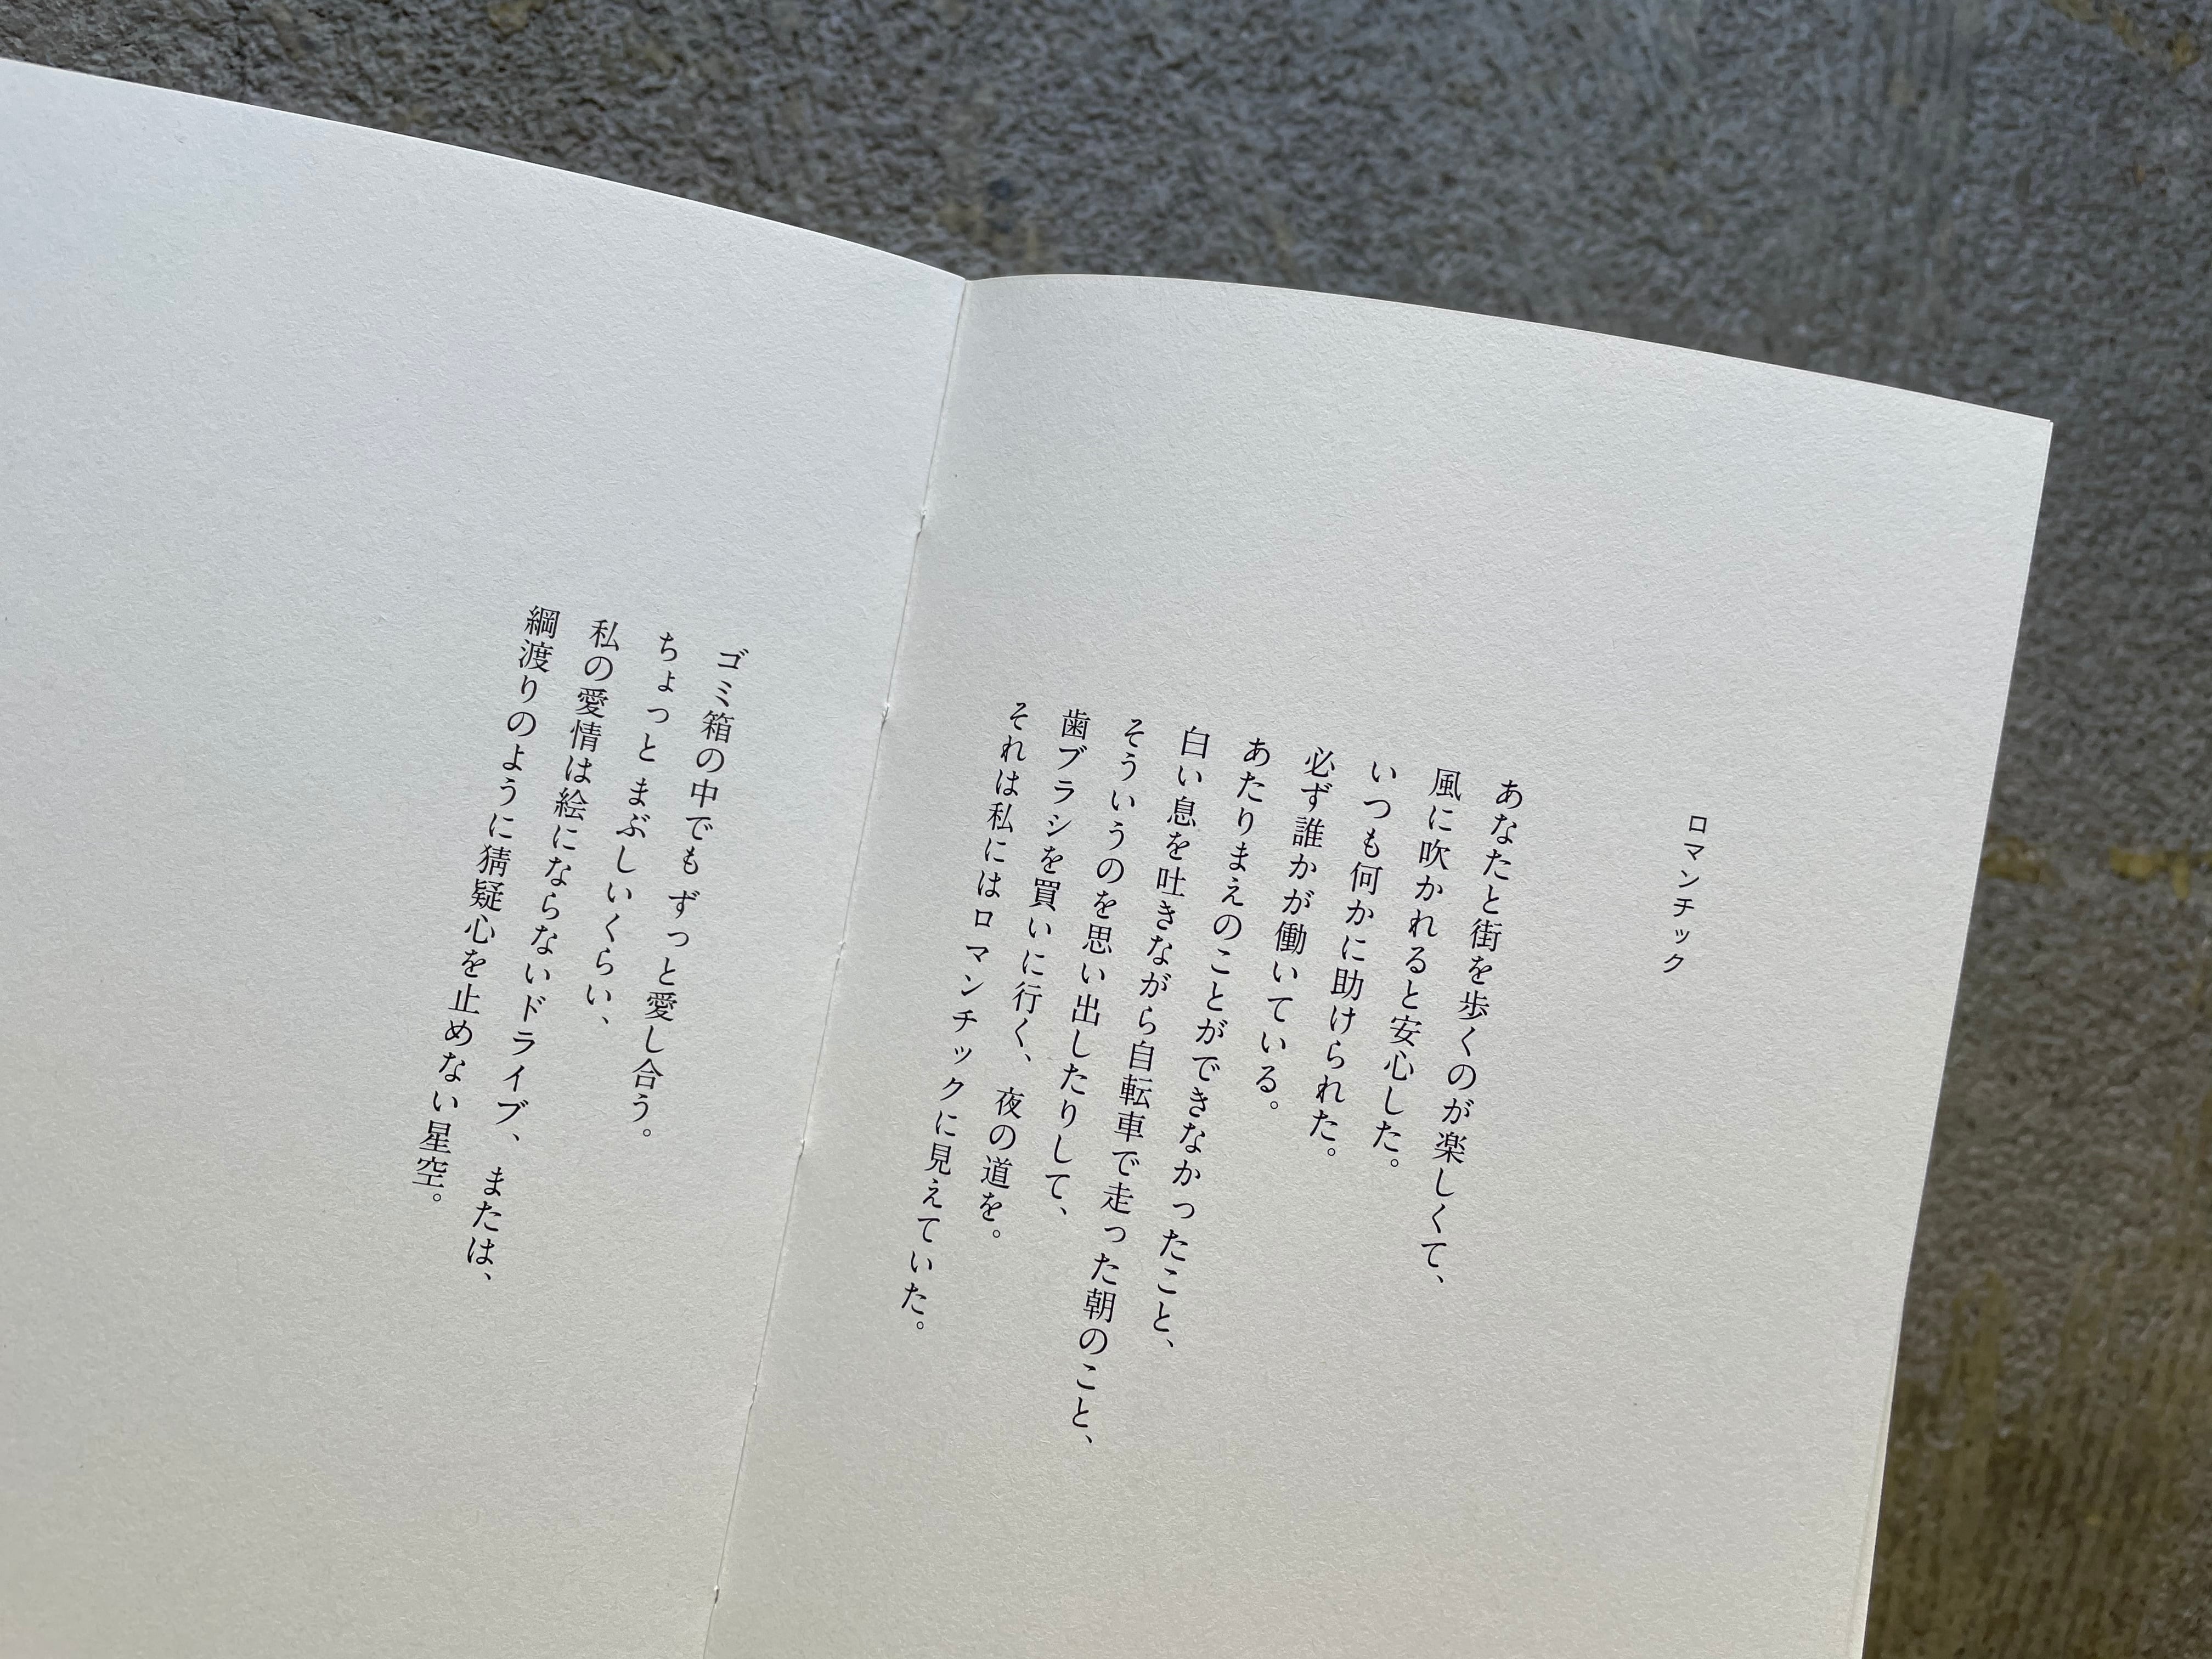 ロマンチック
あなたと街を歩くのが楽しくて、
風に吹かれると安心した。
いつも何かに助けられた。
必ず誰かが働いている。
あたりまえのことができなかったこと、
白い息を吐きながら自転車で走った朝のこと、
そういうのを思い出したりして、
歯ブラシを買いに行く、夜の道を。
それは私にはロマンチックに見えていた。
ゴミ箱の中でも ずっと愛し合う。
ちょっと まぶしいくらい、
私の愛情は絵にならないドライブ、または、
綱渡りのように猜疑心を止めない星空。